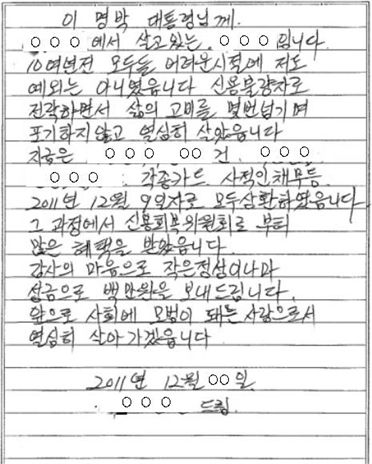 이 명박 대통령님께.
○○○에서 살고있는 ○○○입니다.
10여년전 모두들 어려운시절에 저도
예외는 아니였읍니다 신용불량자로
전락하면서 삶의 고비를 몇번넘기며
포기하지않고 열심히 살았읍니다
지금은 ○○○ ○○건. ○○○
○○○ 각종카드 사적인채무등.
2011년 12월 9일자로 모두상환하였읍니다
그 과정에서 신용회복위원회로 부터
많은 혜택을 받았읍니다.
감사의 마음으로 작은정성이나마
성금으로 백만원을 보내드립니다.
앞으로 사회에 모범이 돼는 사람으로서
열심히 살아가겠읍니다
2011년 12월 ○○일.
○○○ 드림.